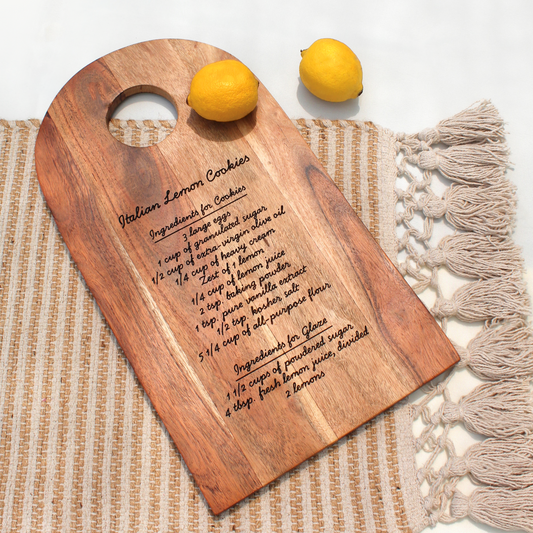 Italian Lemon Cookies
Ingredients for Cookies
3 large eggs
1 cup of granulated sugar
1/2 cup of extra-virgin olive oil
1/4 cup of heavy cream
Zest of 1 lemon
1/4 cup of lemon juice
2 tsp. baking powder
1 tsp. pure vanilla extract
1/2 tsp. kosher salt
5 1/4 cup of all-purpose flour
Ingredients for Glaze
1 1/2 cups of powdered sugar
4 tbsp. fresh lemon juice, divided
2 lemons